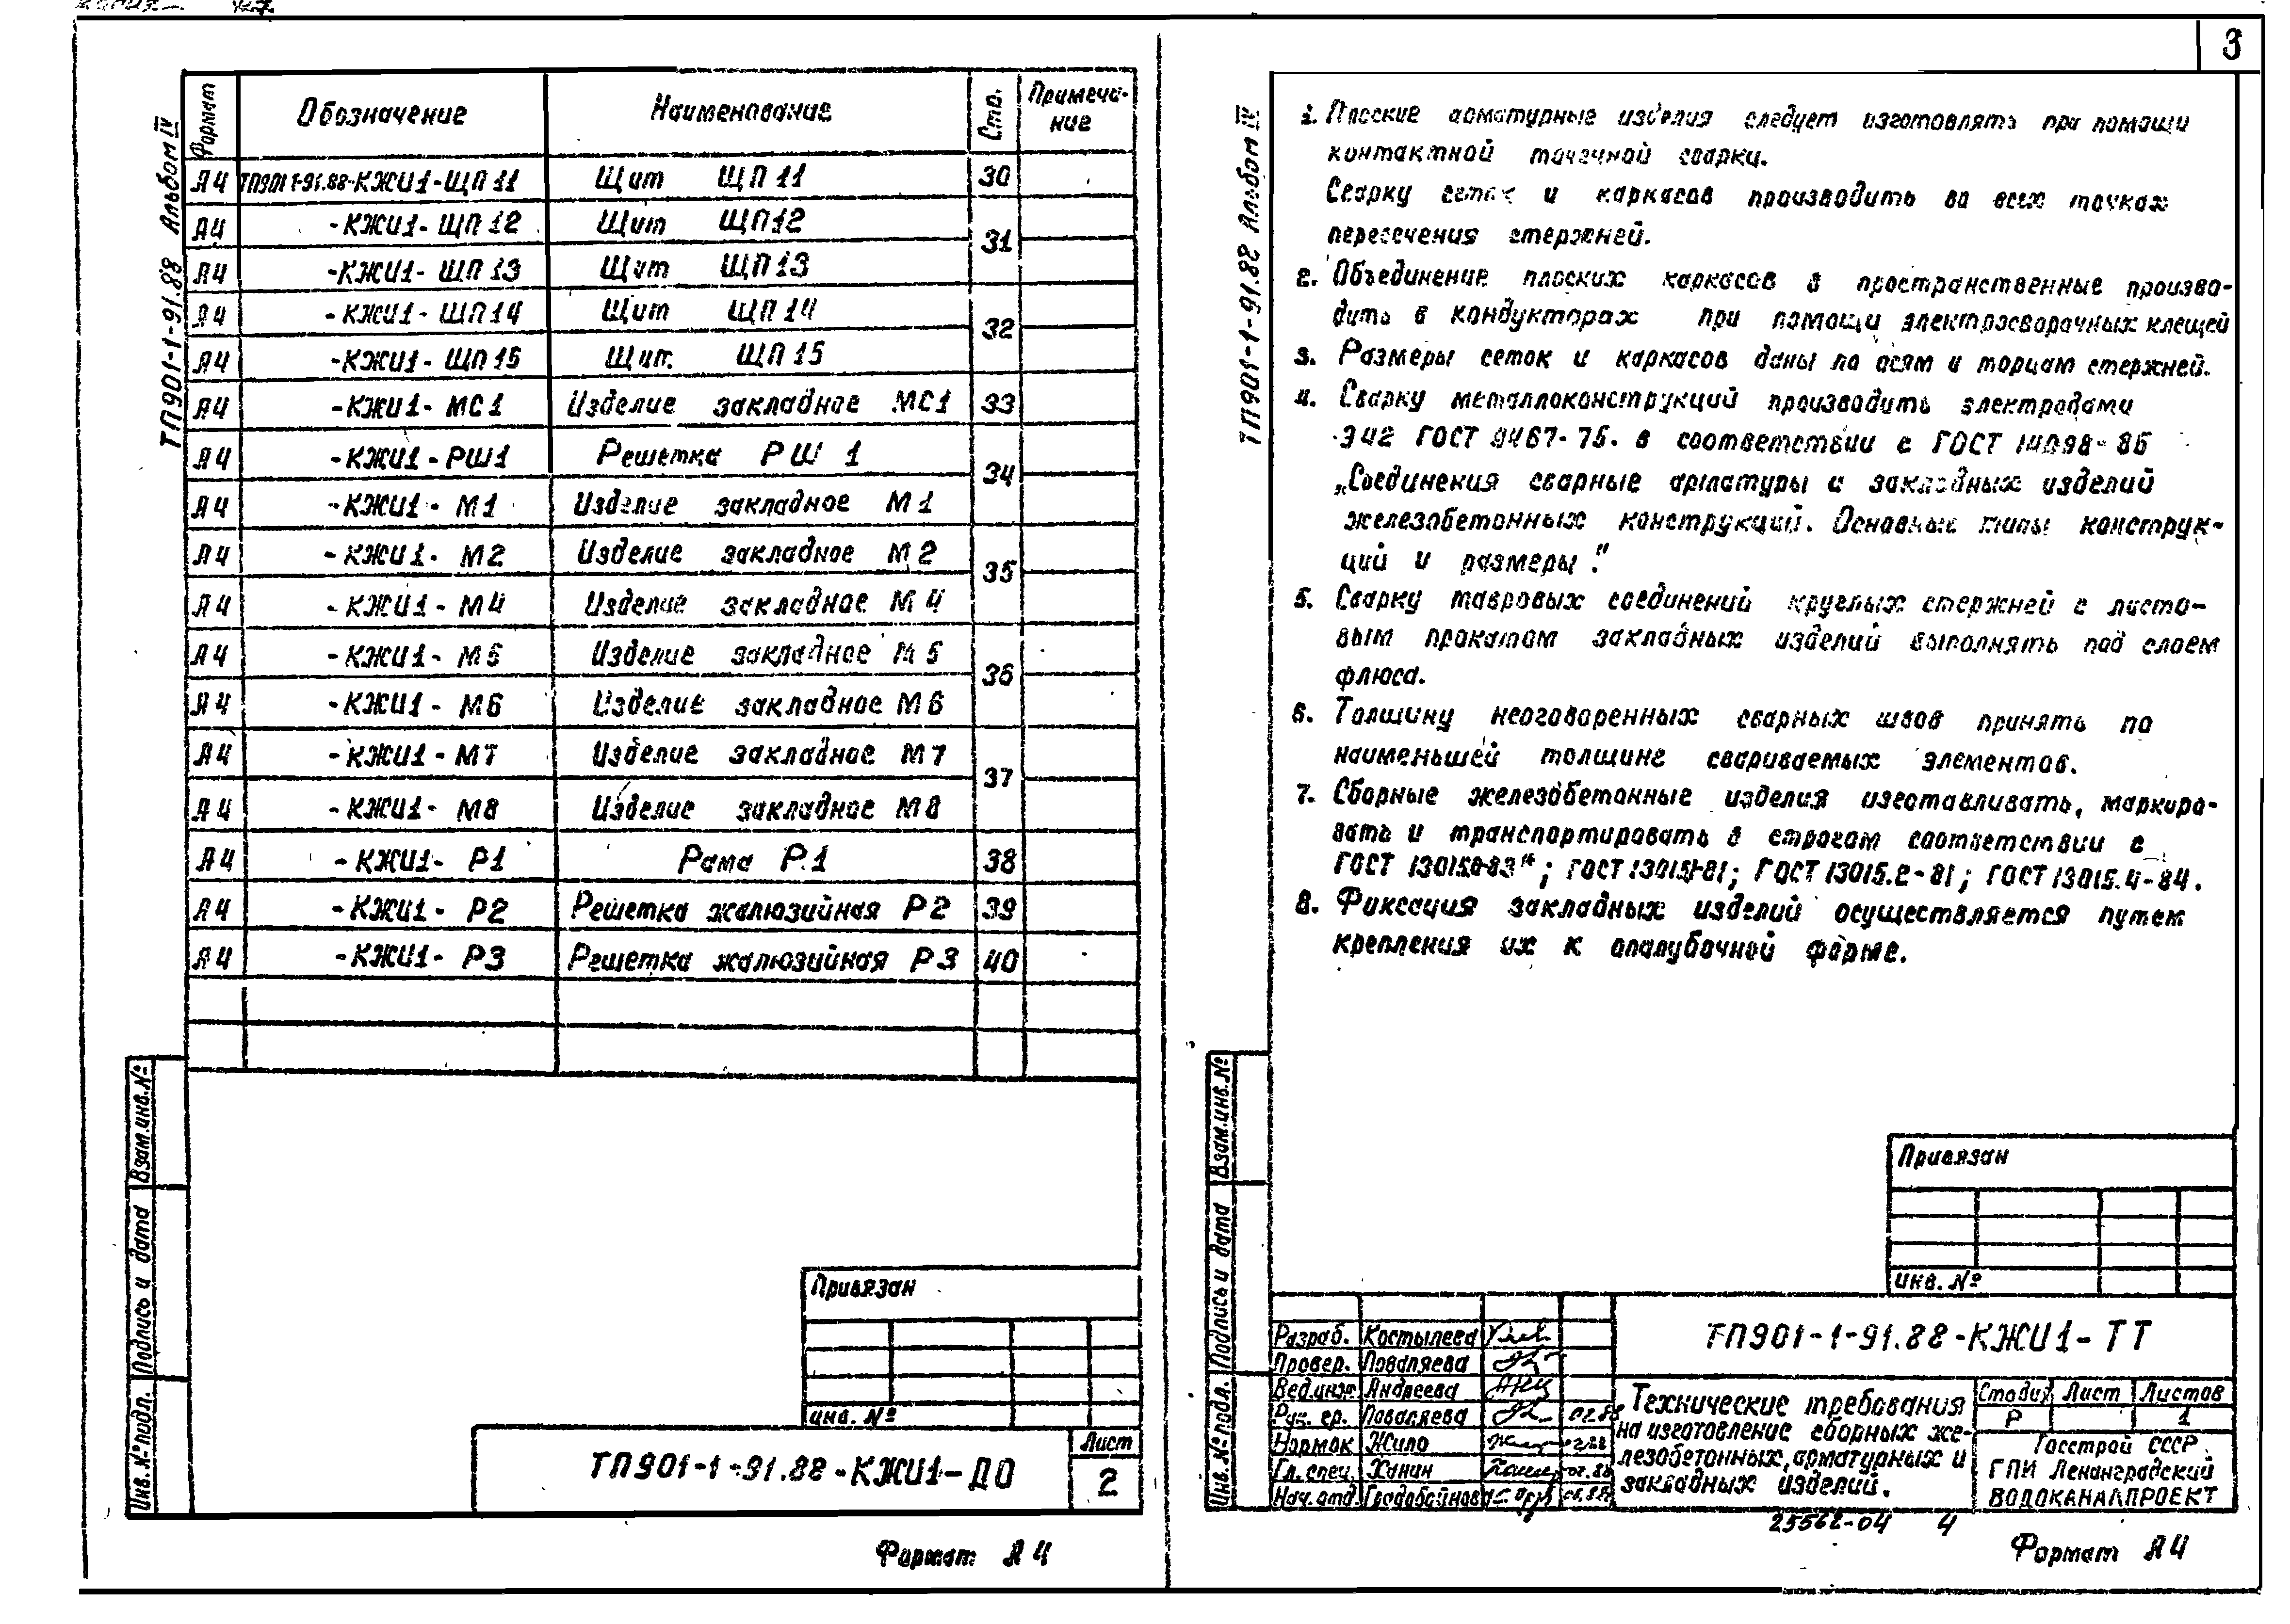 3
ТП901-1-91.88 Альбом IV
Формат Обозначение Наименование Стр. Примеча-
ние
А4 ТП901-1-91.88-КЖИ1-ЩП11 Щит ЩП11 30
А4 -КЖИ1-ЩП12 Щит ЩП12 31
А4 -КЖИ1-ЩП13 Щит ЩП13
А4 -КЖИ1-ЩП14 Щит ЩП14 32
А4 -КЖИ1-ЩП15 Щит ЩП15
А4 -КЖИ1-МС1 Изделие закладное МС1 33
А4 -КЖИ1-РШ1 Решетка РШ1 34
А4 -КЖИ1-М1 Изделие закладное М1
А4 -КЖИ1-М2 Изделие закладное М2 35
А4 -КЖИ1-М4 Изделие закладное М4
А4 -КЖИ1-М5 Изделие закладное М5 36
А4 -КЖИ1-М6 Изделие закладное М6
А4 -КЖИ1-М7 Изделие закладное М7 37
А4 -КЖИ1-М8 Изделие закладное М8
А4 -КЖИ1-Р1 Рама Р.1 38
А4 -КЖИ1-Р2 Решетка жалюзийная Р2 39
А4 -КЖИ1-Р3 Решетка жалюзийная Р3 40
Взам.инв.№
Подпись и дата
Инв.№ подл.
Привязан
инв. №
ТП901-1-91.88-КЖИ1-ДО
Лист
2
Формат А4
ТП901-1-91.88 Альбом IV
1. Плоские арматурные изделия следует изготовлять при помощи
контактной точечной сварки.
Сварку сеток и каркасов производить во всех точках
пересечения стержней.
2. Объединение плоских каркасов в пространственные произво-
дить в кондукторах при помощи электросварочных клещей
3. Размеры сеток и каркасов даны по осям и торцам стержней.
4. Сварку металлоконструкций производить электродами
Э42 ГОСТ 9467-75. в соответствии с ГОСТ 14098-85
„Соединения сварные арматуры и закладных изделий
железобетонных конструкций. Основные типы конструк-
ций и размеры".
5. Сварку тавровых соединений круглых стержней с листо-
вым прокатом закладных изделий выполнять под слоем
флюса.
6. Толщину неоговоренных сварных швов принять по
наименьшей толщине свариваемых элементов.
7. Сборные железобетонные изделия изготавливать, маркиро-
вать и транспортировать в строгом соответствии с
ГОСТ 13015.0-83*; ГОСТ 13015.1-81; ГОСТ 13015.2-81; ГОСТ 13015.4-84.
8. Фиксация закладных изделий осуществляется путем
крепления их к опалубочной форме.
Взам.инв.№
Подпись и дата
Инв.№ подл.
Привязан
инв. №
Разраб. Костылева
Провер. Поваляева
Вед.инж. Андреева
Рук. гр. Поваляева 02.88
Нормок Жило 02.88
Гл. спец. Ханин 02.88
Нач. отд. Гродобойнова 02.88
ТП901-1-91.88-КЖИ1-ТТ
Технические требования
на изготовление сборных же-
лезобетонных, арматурных и
закладных изделий.
Стадия Лист Листов
Р 1
Госстрой СССР
ГПИ Ленинградский
ВОДОКАНАЛПРОЕКТ
25562-04 4
Формат А4